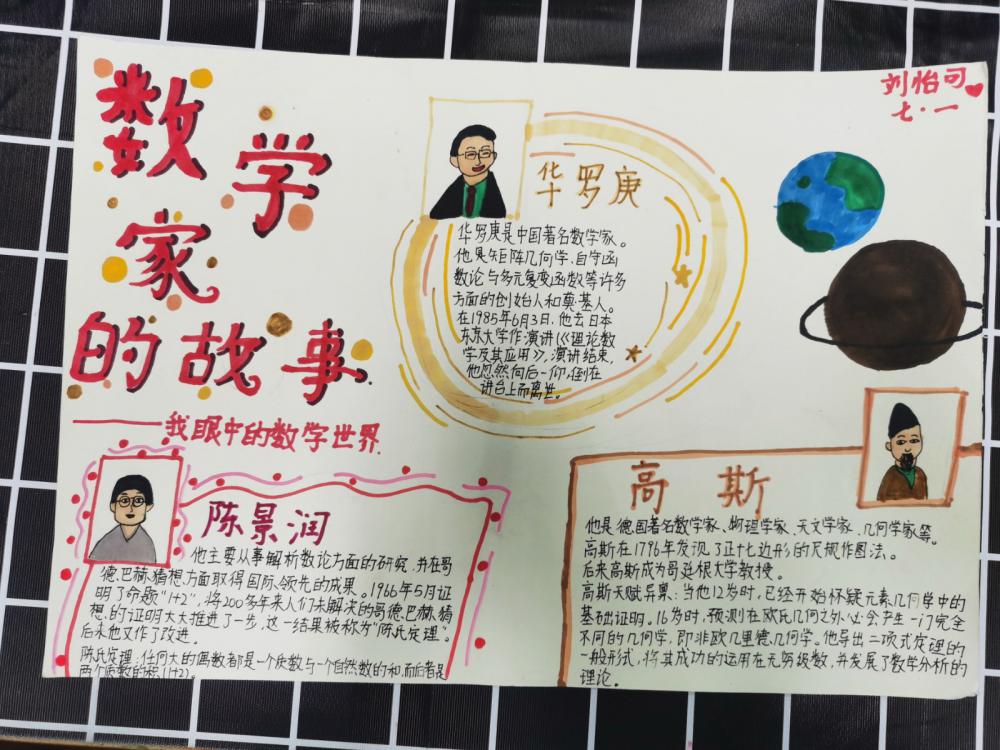 数学
家
的故事
——我眼中的数学世界
刘怡可
七·一
华罗庚
华罗庚是中国著名数学家。
他是矩阵几何学、自守函
数论与多元复变函数等许多
方面的创始人和奠基人。
在1985年6月3日，他去日本
东京大学作演讲《《理论数
学及其应用》》，演讲结束，
他忽然向后一仰，倒在
讲台上而离世。
陈景润
他主要从事解析数论方面的研究，并在哥
德巴赫猜想方面取得国际领先的成果。1966年5月证
明了命题"1+2"，将200多年来人们未解决的哥德巴赫猜
想的证明大大推进了一步，这一结果被称为"陈氏定理"。
后来他又作了改进。
陈氏定理：任何大的偶数都是一个质数与一个自然数的和，而后者是
两个质数的积（1+2）。
高斯
他是德国著名数学家、物理学家、天文学家、几何学家等。
高斯在1796年发现了正十七边形的尺规作图法。
后来高斯成为哥廷根大学教授。
高斯天赋异禀：当他12岁时，已经开始怀疑元素几何学中的
基础证明。16岁时，预测在欧氏几何之外必会产生一门完全
不同的几何学，即非欧几里德几何学。他导出二项式定理的
一般形式，将其成功的运用在无穷级数，并发展了数学分析的
理论。